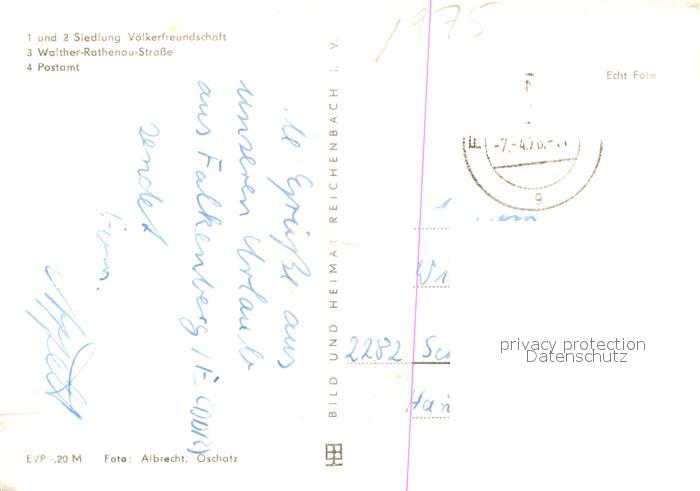 1 und 2 Siedlung Völkerfreundschaft
3 Walther-Rathenau-Straße
4 Postamt
1975
Echt Foto
Grüße aus
unseren Urlaub
aus Falkenberg/E (DDR)
sendet
Fam.
BILD UND HEIMAT REICHENBACH i. V.
-7.-4.76.-
g
2282
privacy protection
Datenschutz
EVP -,20 M Foto: Albrecht, Oschatz